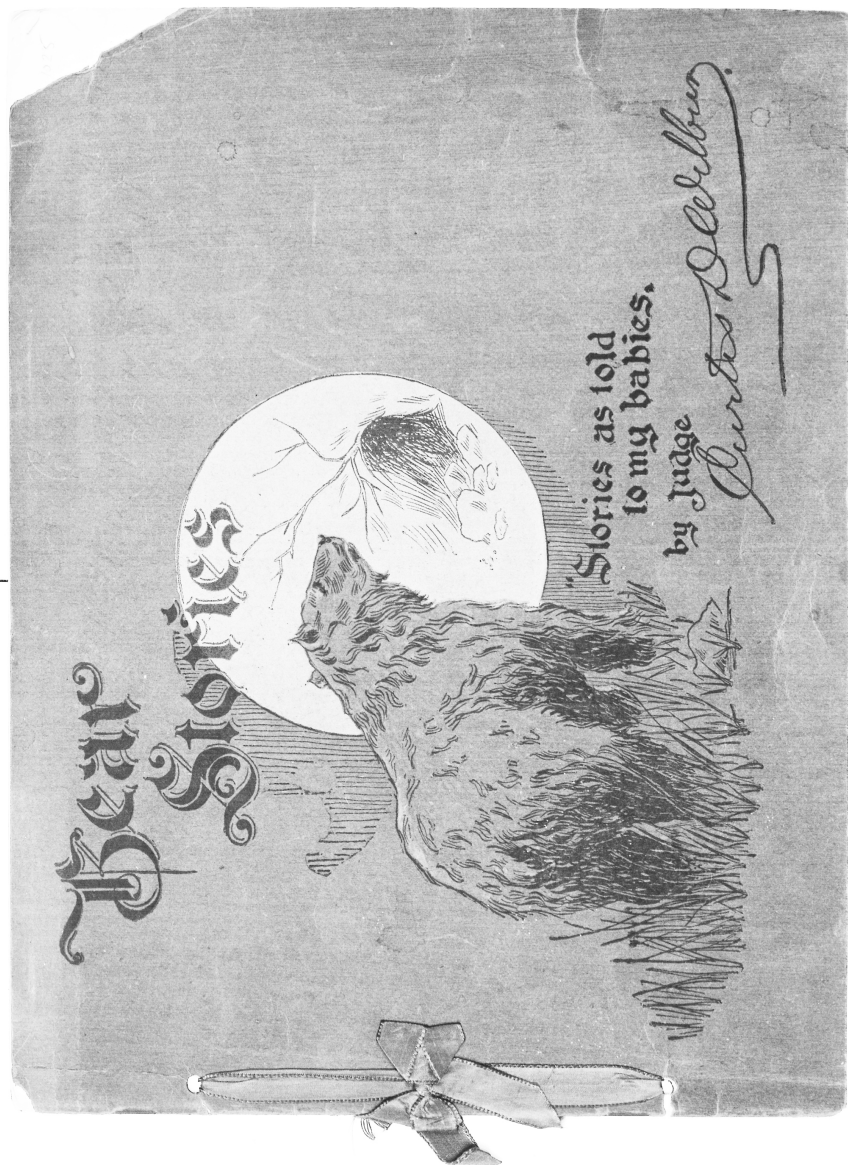 Bear
Stories
"Stories as told
to my babies.
by Judge
Curtis D Wilbur.